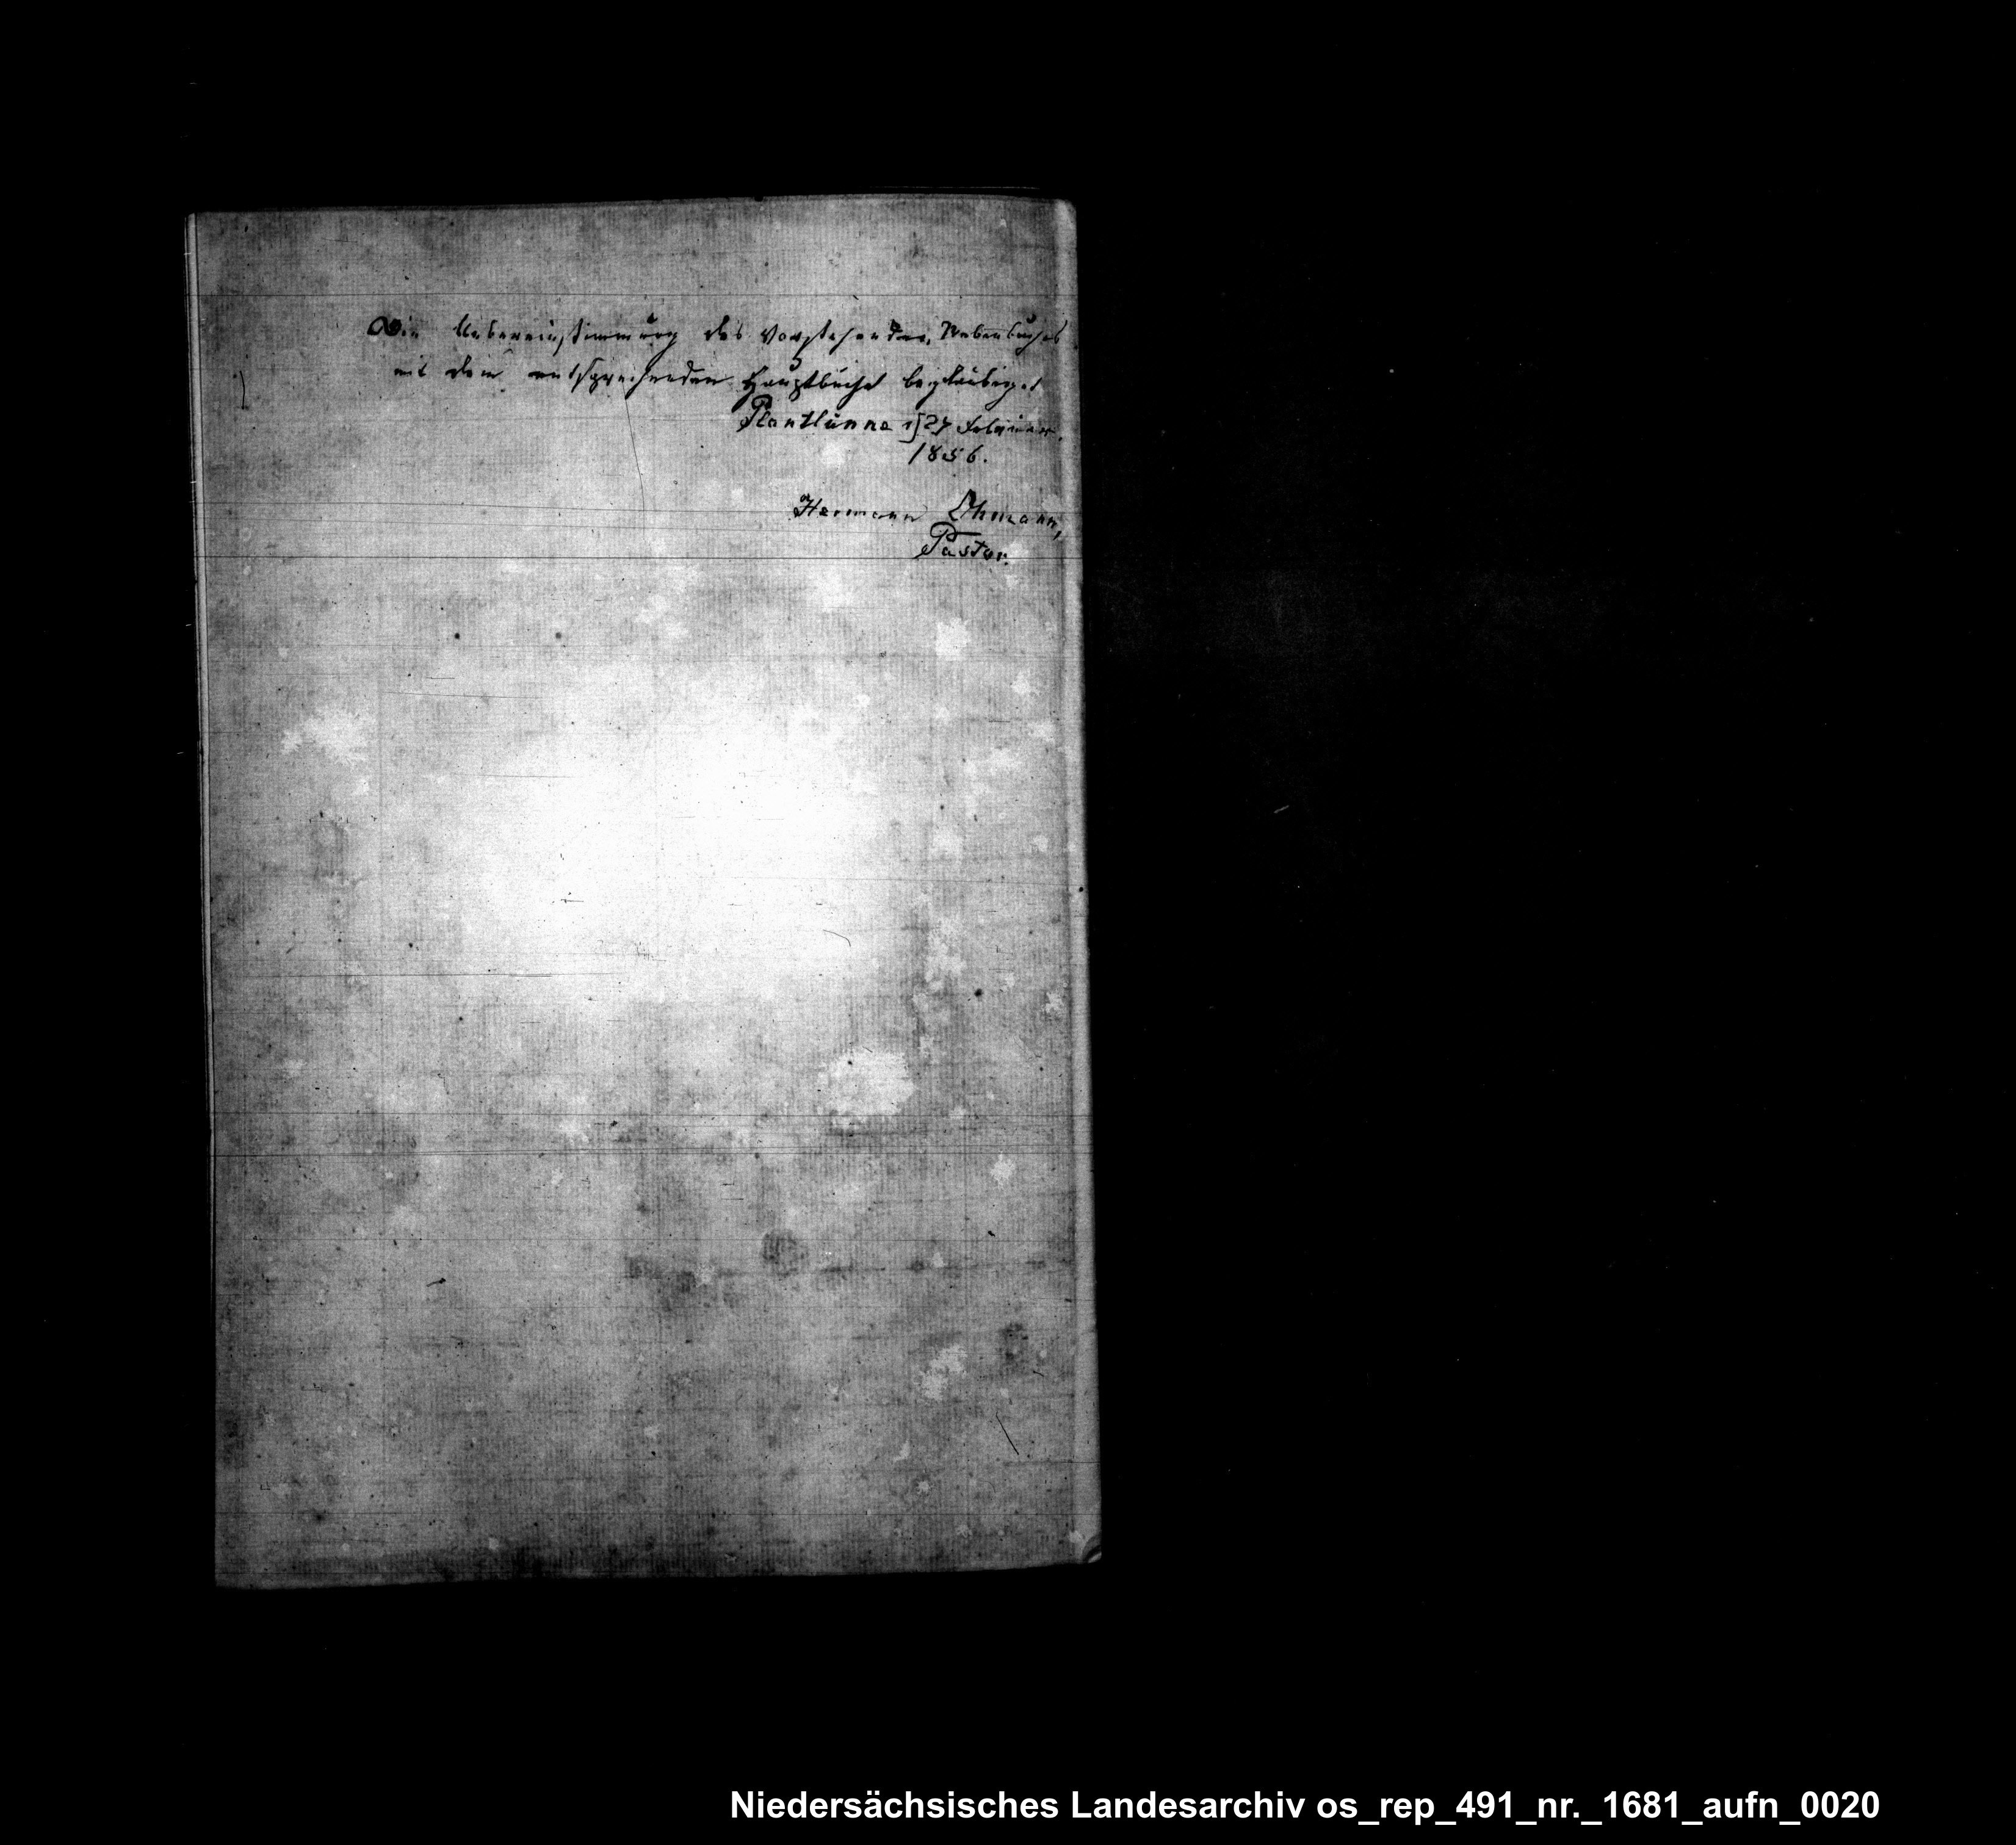 Die Uebereinstimmung des vorstehenden Nebenbuches
mit dem entsprechenden Hauptbuche beglaubiget
Plantlünne 27 Februar
1856.
Hermann Ohmann,
Pastor.
Niedersächsisches Landesarchiv os_rep_491_nr._1681_aufn_0020